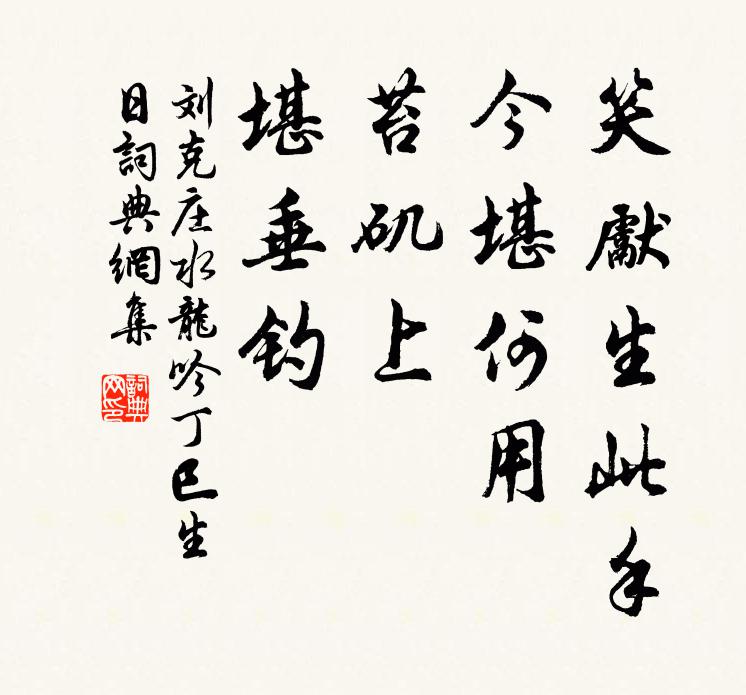 笑獻生此手
今堪何用
苔矶上
堪垂钓
刘克庄水龍吟丁巳生
日詞典網集
詞典網印